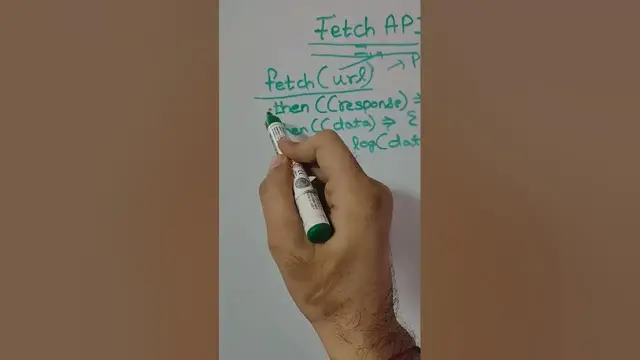 Fetch API
fetch(url) → P
.then((response) ⇒
.then((data) ⇒ {
log(dat